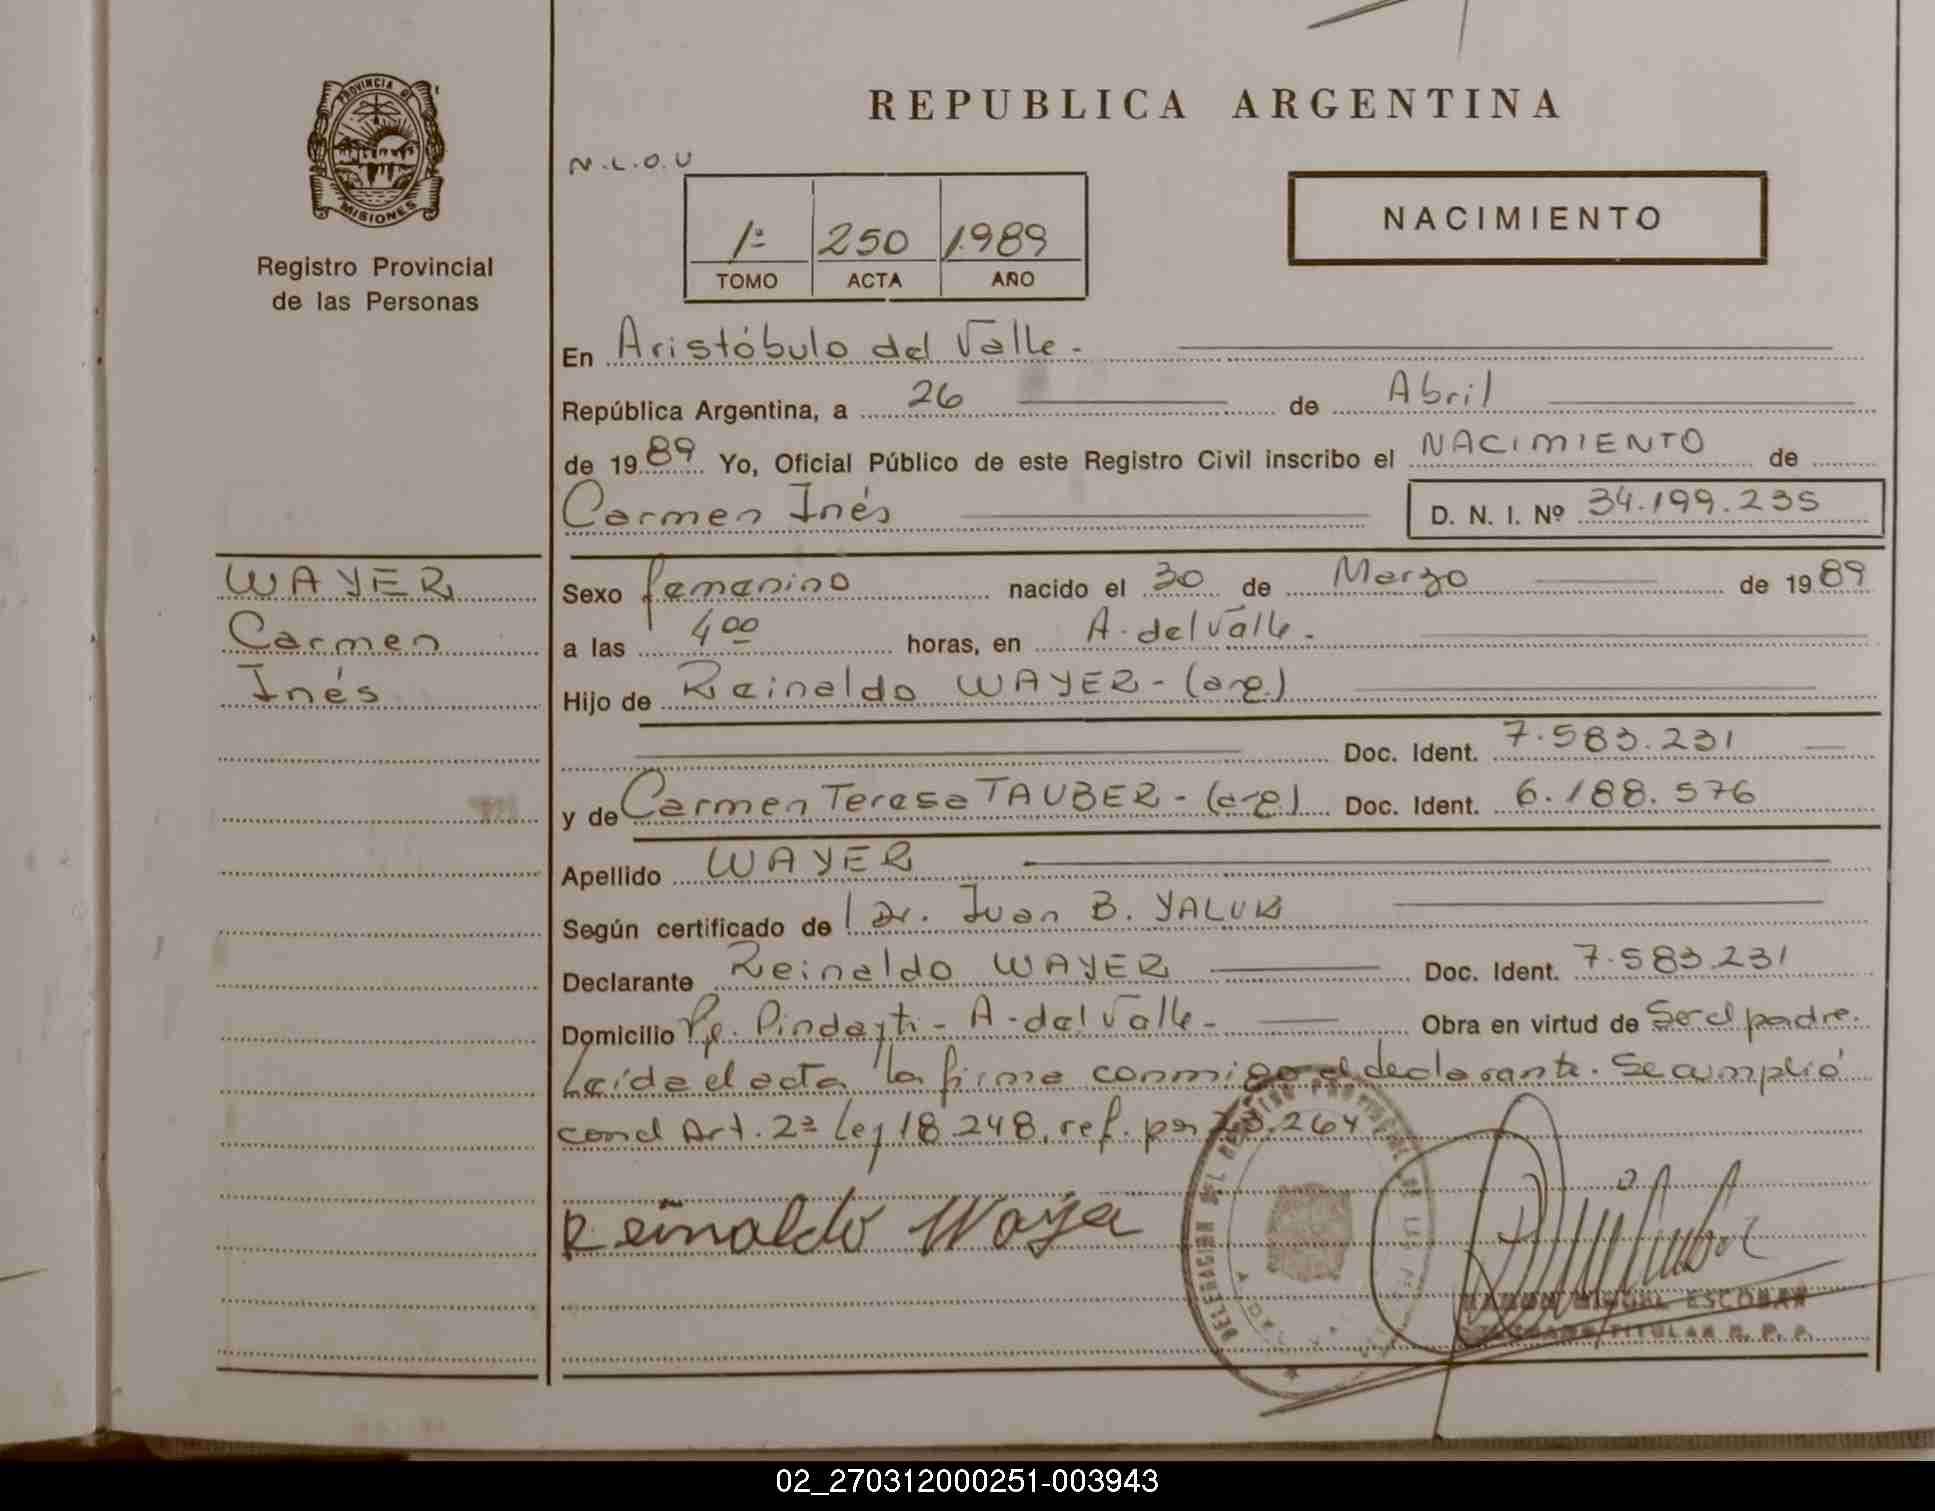 PROVINCIA DE
MISIONES
Registro Provincial
de las Personas
REPUBLICA ARGENTINA
N.L.O.U
1º 250 1989
TOMO ACTA AÑO
NACIMIENTO
En Aristóbulo del Valle.
República Argentina, a 26 de Abril
de 1989 Yo, Oficial Público de este Registro Civil inscribo el NACIMIENTO de
Carmen Inés D. N. I. Nº 34.199.235
WAYER
Carmen
Inés
Sexo femenino nacido el 30 de Marzo de 1989
a las 4 00 horas, en A. del Valle.
Hijo de Reinaldo WAYER - (arg.)
Doc. Ident. 7.583.231
y de Carmen Teresa TAUBER - (arg.) Doc. Ident. 6.188.576
Apellido WAYER
Según certificado de Dr. Juan B. YALUK
Declarante Reinaldo WAYER Doc. Ident. 7.583.231
Domicilio Pje. Pindayti - A. del Valle - Obra en virtud de Ser el padre.
Leída el acta la firma conmigo el declarante. Se cumplió
con el Art. 2º Ley 18.248, ref. por 23.264
Reinaldo Wayer
RAMON MIGUEL ESCOBAR
TITULAR R. P. P.
02_270312000251-003943